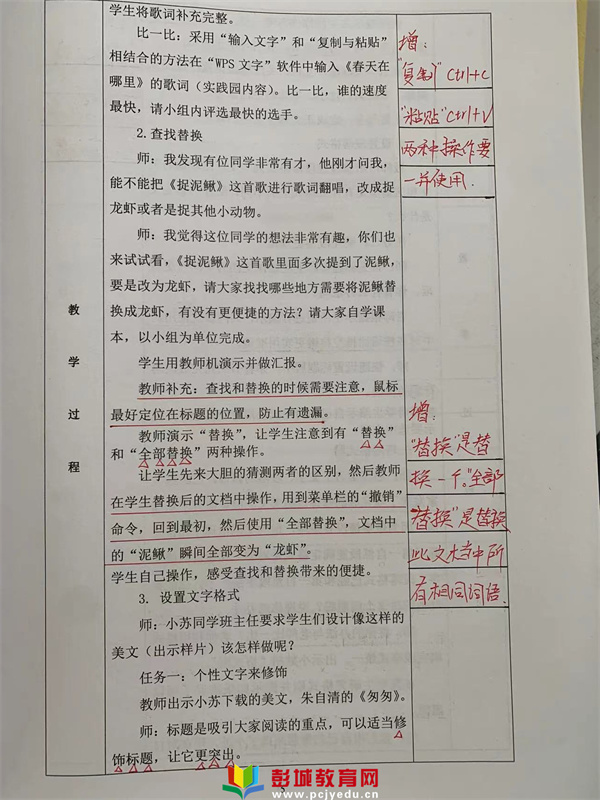 学生将歌词补充完整。
比一比：采用“输入文字”和“复制与粘贴”
相结合的方法在“WPS 文字”软件中输入《春天在
哪里》的歌词（实践园内容）。比一比，谁的速度
最快，请小组内评选最快的选手。
2.查找替换
师：我发现有位同学非常有才，他刚才问我，
能不能把《捉泥鳅》这首歌进行歌词翻唱，改成捉
龙虾或者是捉其他小动物。
师：我觉得这位同学的想法非常有趣，你们也
来试试看，《捉泥鳅》这首歌里面多次提到了泥鳅，
要是改为龙虾，请大家找找哪些地方需要将泥鳅替
换成龙虾，有没有更便捷的方法？请大家自学课
本，以小组为单位完成。
学生用教师机演示并做汇报。
教师补充：查找和替换的时候需要注意，鼠标
最好定位在标题的位置，防止有遗漏。
教师演示“替换”，让学生注意到有“替换”
和“全部替换”两种操作。
让学生先来大胆的猜测两者的区别，然后教师
在学生替换后的文档中操作，用到菜单栏的“撤销”
命令，回到最初，然后使用“全部替换”，文档中
的“泥鳅”瞬间全部变为“龙虾”。
学生自己操作，感受查找和替换带来的便捷。
3. 设置文字格式
师：小苏同学班主任要求学生们设计像这样的
美文（出示样片）该怎样做呢？
任务一：个性文字来修饰
教师出示小苏下载的美文，朱自清的《匆匆》。
师：标题是吸引大家阅读的重点，可以适当修
饰标题，让它更突出。
教
学
过
程
增：
“复制” Ctrl+C
“粘贴” Ctrl+V
两种操作要
一并使用.
增：
“替换”是替
换一个。“全部
替换”是替换
此文档中所
有相同词语.
5
彭城教育网
www.pcjyedu.cn